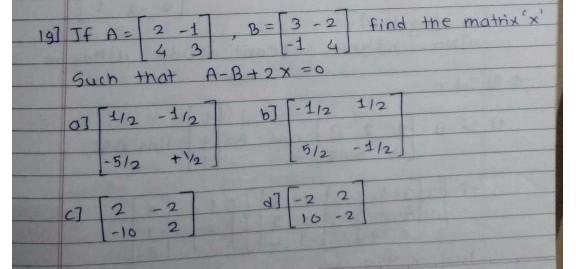 19] If A = [ 2 -1 4 3 ] , B = [ 3 -2 -1 4 ] find the matrix 'x'
Such that A-B+2x=0
a] [ 1/2 -1/2 -5/2 +1/2 ] b] [ -1/2 1/2 5/2 -1/2 ]
c] [ 2 -2 -10 2 ] d] [ -2 2 10 -2 ]